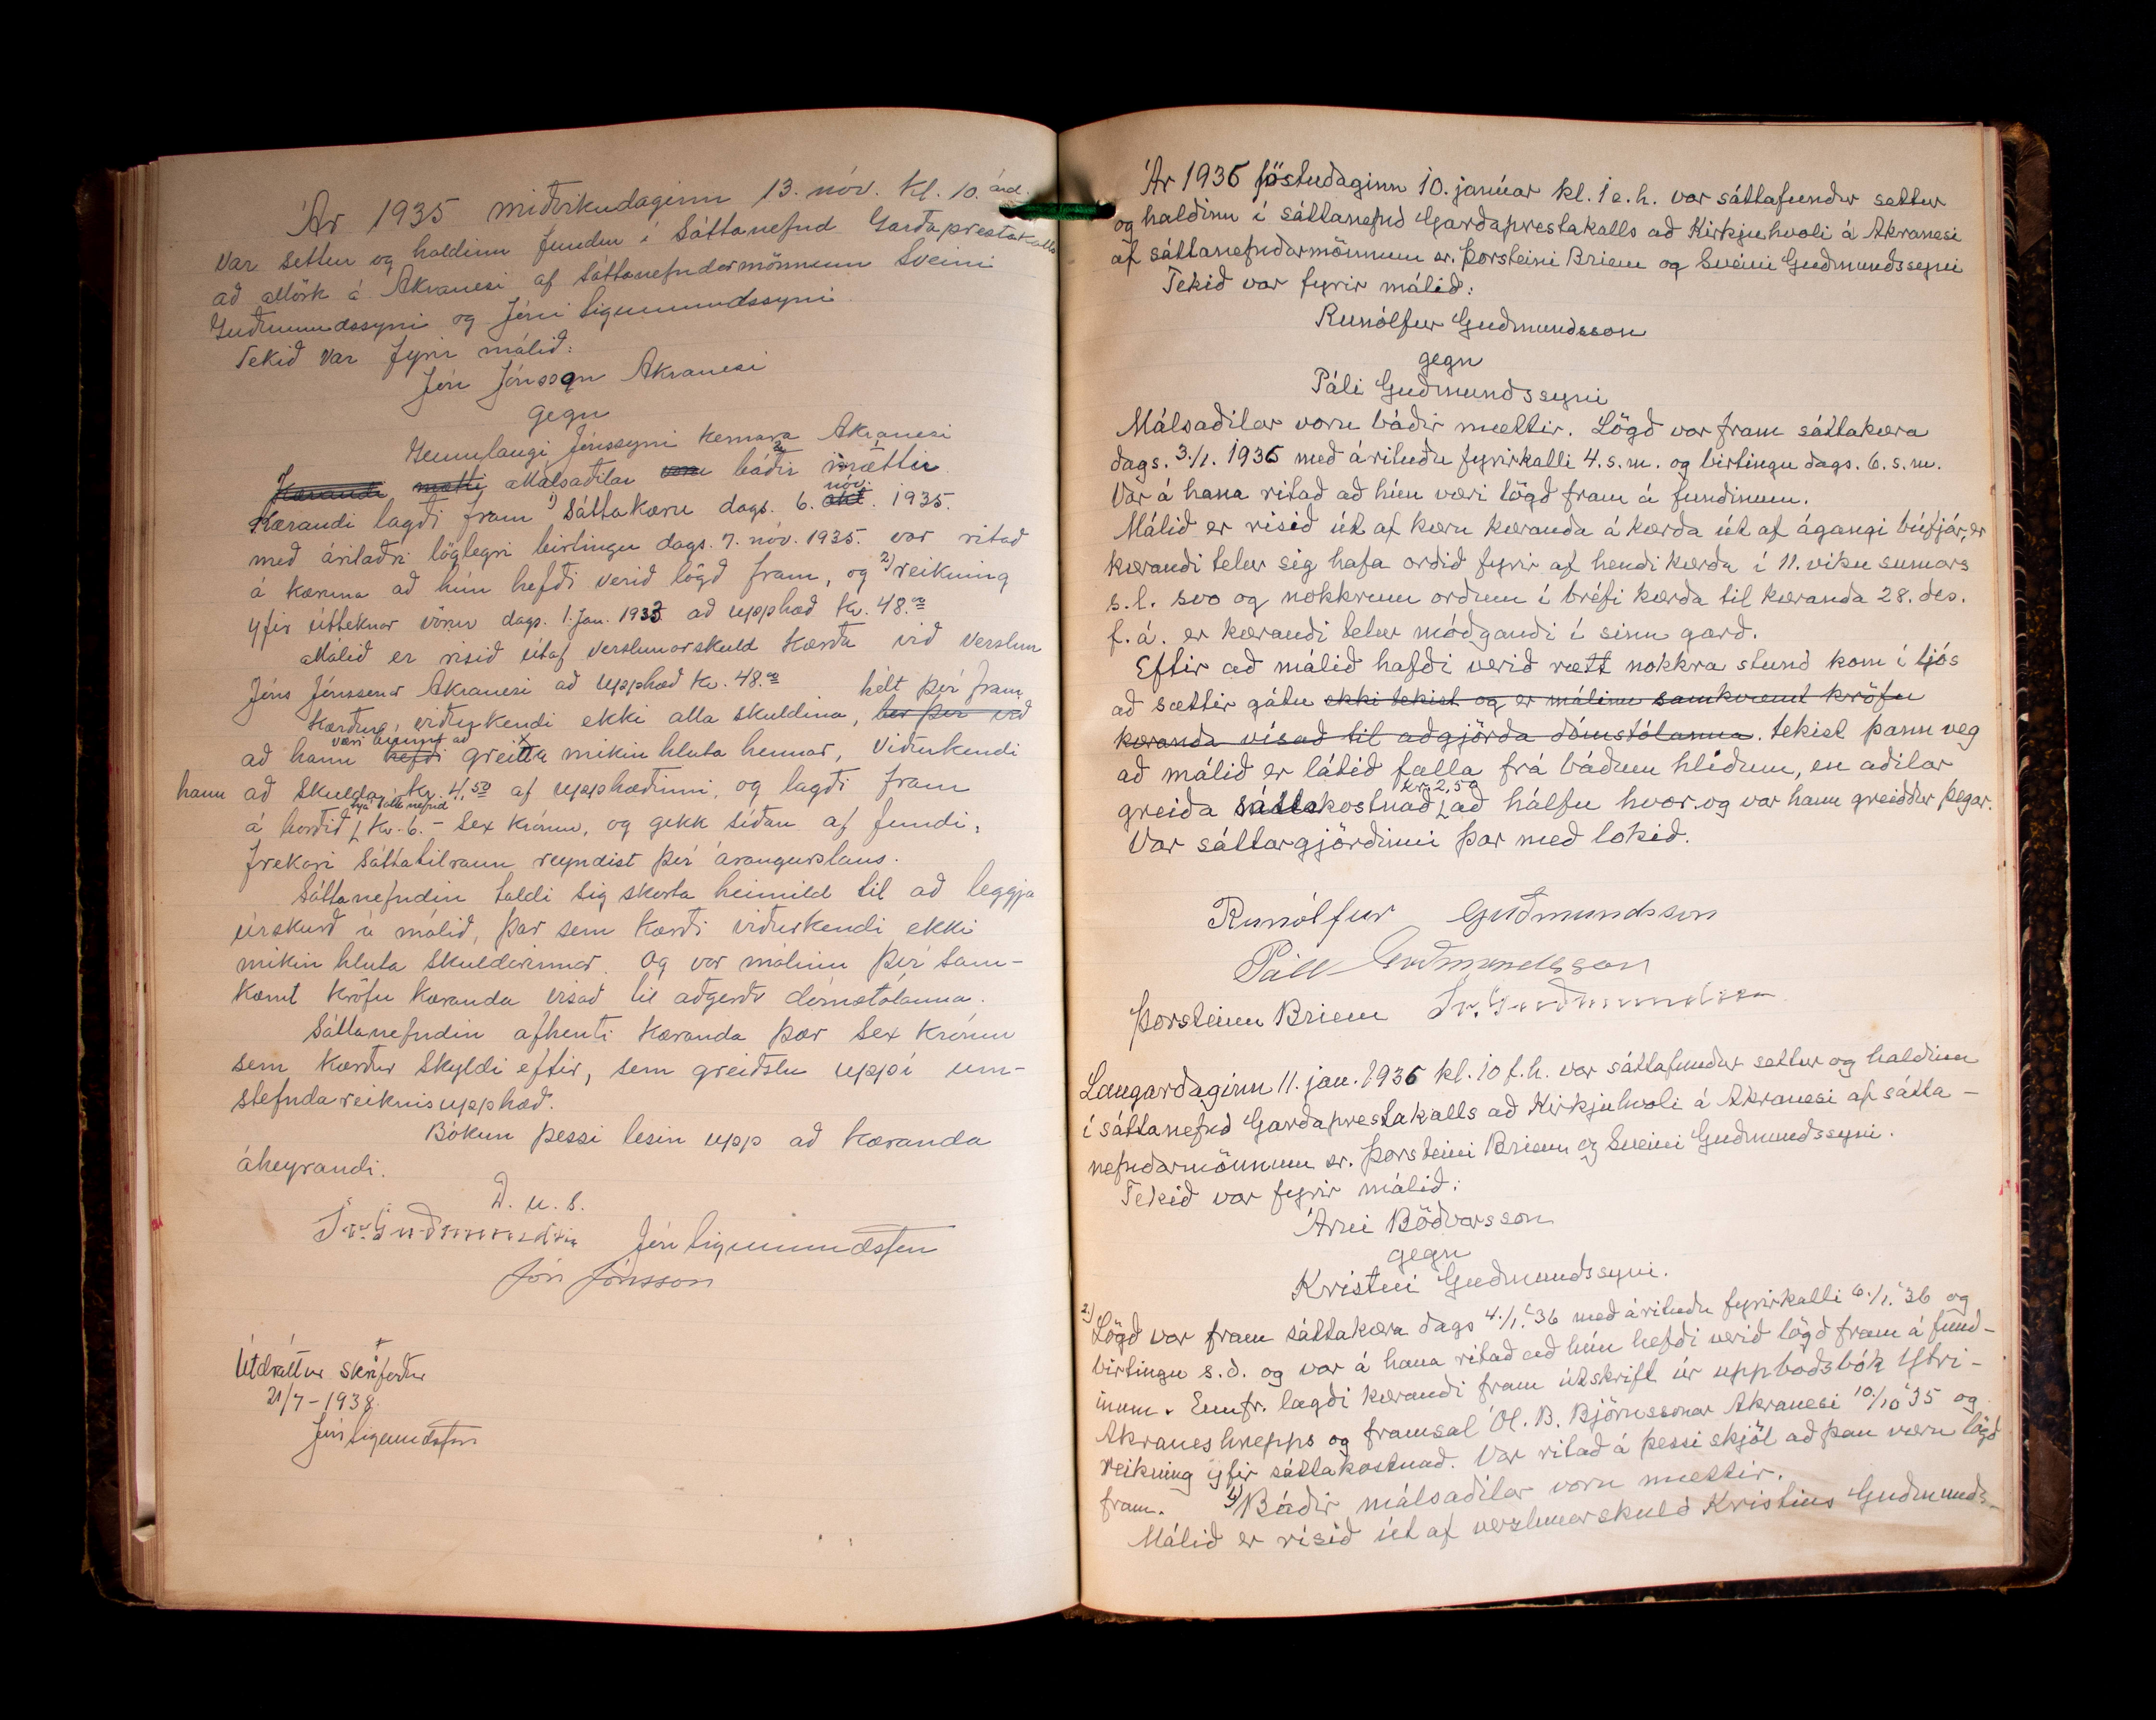 Ár 1935 miðvikudaginn 13. nóv. kl. 10. árd.
var settur og haldinn fundur í Sáttanefnd Garðaprestakalls
að Mörk á Akranesi af Sáttanefndarmönnum Sveini
Guðmundssyni og Jóni Sigmundssyni.
Tekið var fyrir málið:
Jón Jónsson Akranesi
gegn
Gunnlaugi Jónssyni kennara Akranesi
Kærandi mætti Málsaðilar voru báðir mættir.
Kærandi lagði fram 1) Sáttakæru dags. 6. okt. nóv. 1935.
með áritaðri löglegri birtingu dags. 7. nóv. 1935. var ritað
á kæruna að hún hefði verið lögð fram, og 2) reikning
yfir útteknar vörur dags. 1. Jan. 1933 að upphæð kr. 48.00
Málið er risið útaf verslunarskuld kærða við verslun
Jóns Jónssonar Akranesi að upphæð kr. 48.00
Kærður, viðurkendi ekki alla skuldina, ber því við hélt því fram
að hann hefði væri búinn að greitta mikin hluta hennar, viðurkendi
hann að skulda kr. 4,50 af upphæðinni, og lagði fram
á borðið hjá sáttanefnd kr. 6.- Sex krónur, og gekk síðan af fundi,
frekari sáttatilraun reyndist því árangurslaus.
Sáttanefndin taldi sig skorta heimild til að leggja
úrskurð á málið, þar sem kærði viðurkendi ekki
mikin hluta skuldarinnar. Og var málinu því sam-
kæmt kröfu kæranda vísað til aðgerða dómstólanna.
Sáttanefndin afhenti kæranda þær sex krónur
sem kærður skyldi eftir, sem greiðslu uppí um-
stefnda reiknisupphæð.
Bókun þessi lesin upp að kæranda
áheyrandi.
D. u. s.
Sv. Guðmundsson Jón Sigmundsson
Jón Jónsson
Útdráttur skrifaður
21/7-1938.
Jón Sigmundsson
Ár 1936 föstudaginn 10. janúar kl. 1 e.h. var sáttafundur settur
og haldinn í sáttanefnd Garðaprestakalls að Kirkjuhvoli á Akranesi
af sáttanefndarmönnum sr. Þorsteini Briem og Sveini Guðmundssyni
Tekið var fyrir málið:
Runólfur Guðmundsson
gegn
Páli Guðmundssyni
Málsaðilar voru báðir mættir. Lögð var fram sáttakæra
dags. 3./1. 1936 með árituðu fyrirkalli 4. s.m. og birtingu dags. 6. s.m.
Var á hana ritað að hún væri lögð fram á fundinum.
Málið er risið út af kæru kæranda á kærða út af ágangi búfjár, er
kærandi telur sig hafa orðið fyrir af hendi kærða í 11. viku sumars
s.l. svo og nokkrum orðum í bréfi kærða til kæranda 28. des.
f.á. er kærandi telur móðgandi í sinn garð.
Eftir að málið hafði verið rætt nokkra stund kom í ljós
að sættir gátu ekki tekist og er málinu samkvæmt kröfu
kæranda vísað til aðgjörða dómstólanna. tekist þann veg
að málið er látið falla frá báðum hliðum, en aðilar
greiða sáttakostnað kr. 2,50 að hálfu hvor. og var hann greiddur þegar.
Var sáttargjörðinni þar með lokið.
Runólfur Guðmundsson
Páll Guðmundsson
Þorsteinn Briem Sv. Guðmundsson
Laugardaginn 11. jan. 1936 kl. 10 f.h. var sáttafundur settur og haldinn
í sáttanefnd Garðaprestakalls að Kirkjuhvoli á Akranesi af sátta-
nefndarmönnum sr. Þorsteini Briem og Sveini Guðmundssyni.
Tekið var fyrir málið:
Árni Böðvarsson
gegn
Kristni Guðmundssyni.
2.) Lögð var fram sáttakæra dags 4./1. '36 með árituðu fyrirkalli 6./1. '36 og
birtingu s.d. og var á hana ritað að hún hefði verið lögð fram á fund-
inum. Ennfr. lagði kærandi fram útskrift úr uppboðsbók Ytri-
Akraneshrepps og framsal Ól. B. Björnssonar Akranesi 10./10 '35 og
reikning yfir sáttakostnað. Var ritað á þessi skjöl að þau væru lögð
fram. 1) Báðir málsaðilar voru mættir.
Málið er risið út af verzlunarskuld Kristins Guðmunds-